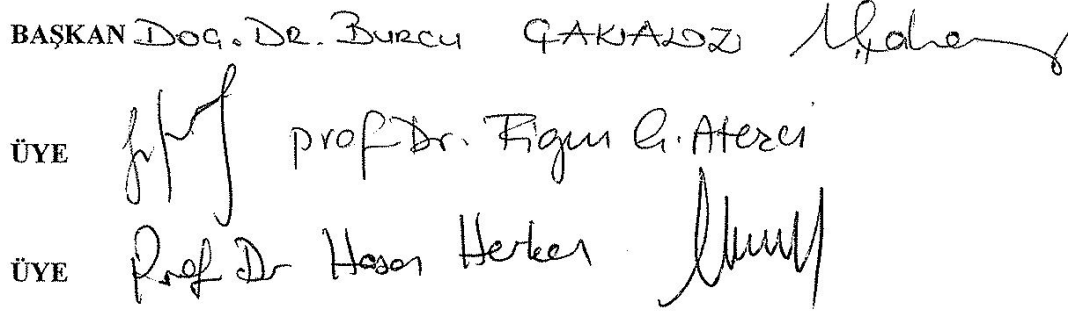 BAŞKAN DOÇ. DR. BURCU ÇAKALOZ
ÜYE prof Dr. Figen Ç. Ateşci
ÜYE Prof Dr Hasan Herken